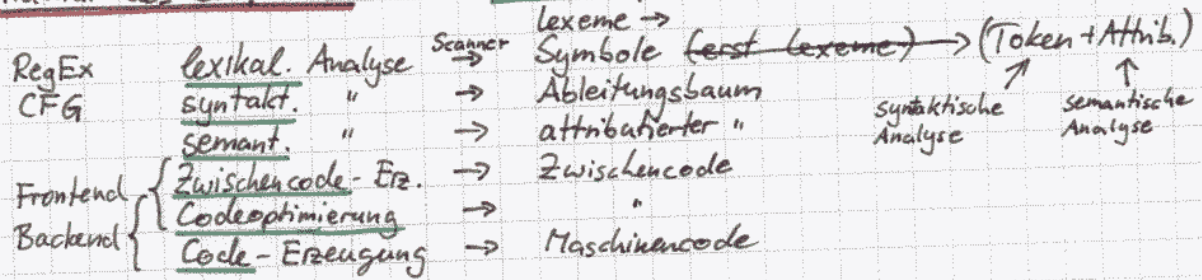 lexeme →
RegEx lexikal. Analyse Scanner → Symbole (erst Lexeme) → (Token + Attrib.)
CFG syntakt. " → Ableitungsbaum syntaktische Analyse semantische Analyse
semant. " → attributierter "
Frontend Zwischencode-Erz. → Zwischencode
Codeoptimierung → "
Backend Code-Erzeugung → Maschinencode